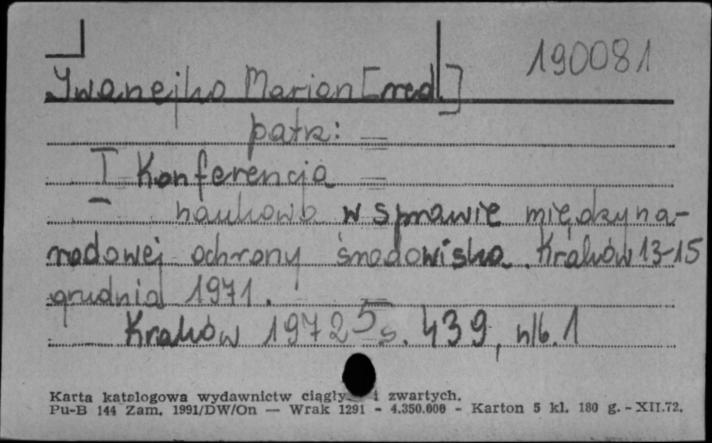 190081
Iwanejko Marian [red.]
patrz:
I Konferencja
naukowa w sprawie międzyna-
rodowej ochrony środowiska. Kraków 13-15
grudnia 1971.
Kraków 1972 s. 439, nlb. 1
Karta katalogowa wydawnictw ciągły i zwartych.
Pu-B 144 Zam. 1991/DW/On — Wrak 1291 - 4.350.000 - Karton 5 kl. 180 g. - XII.72.